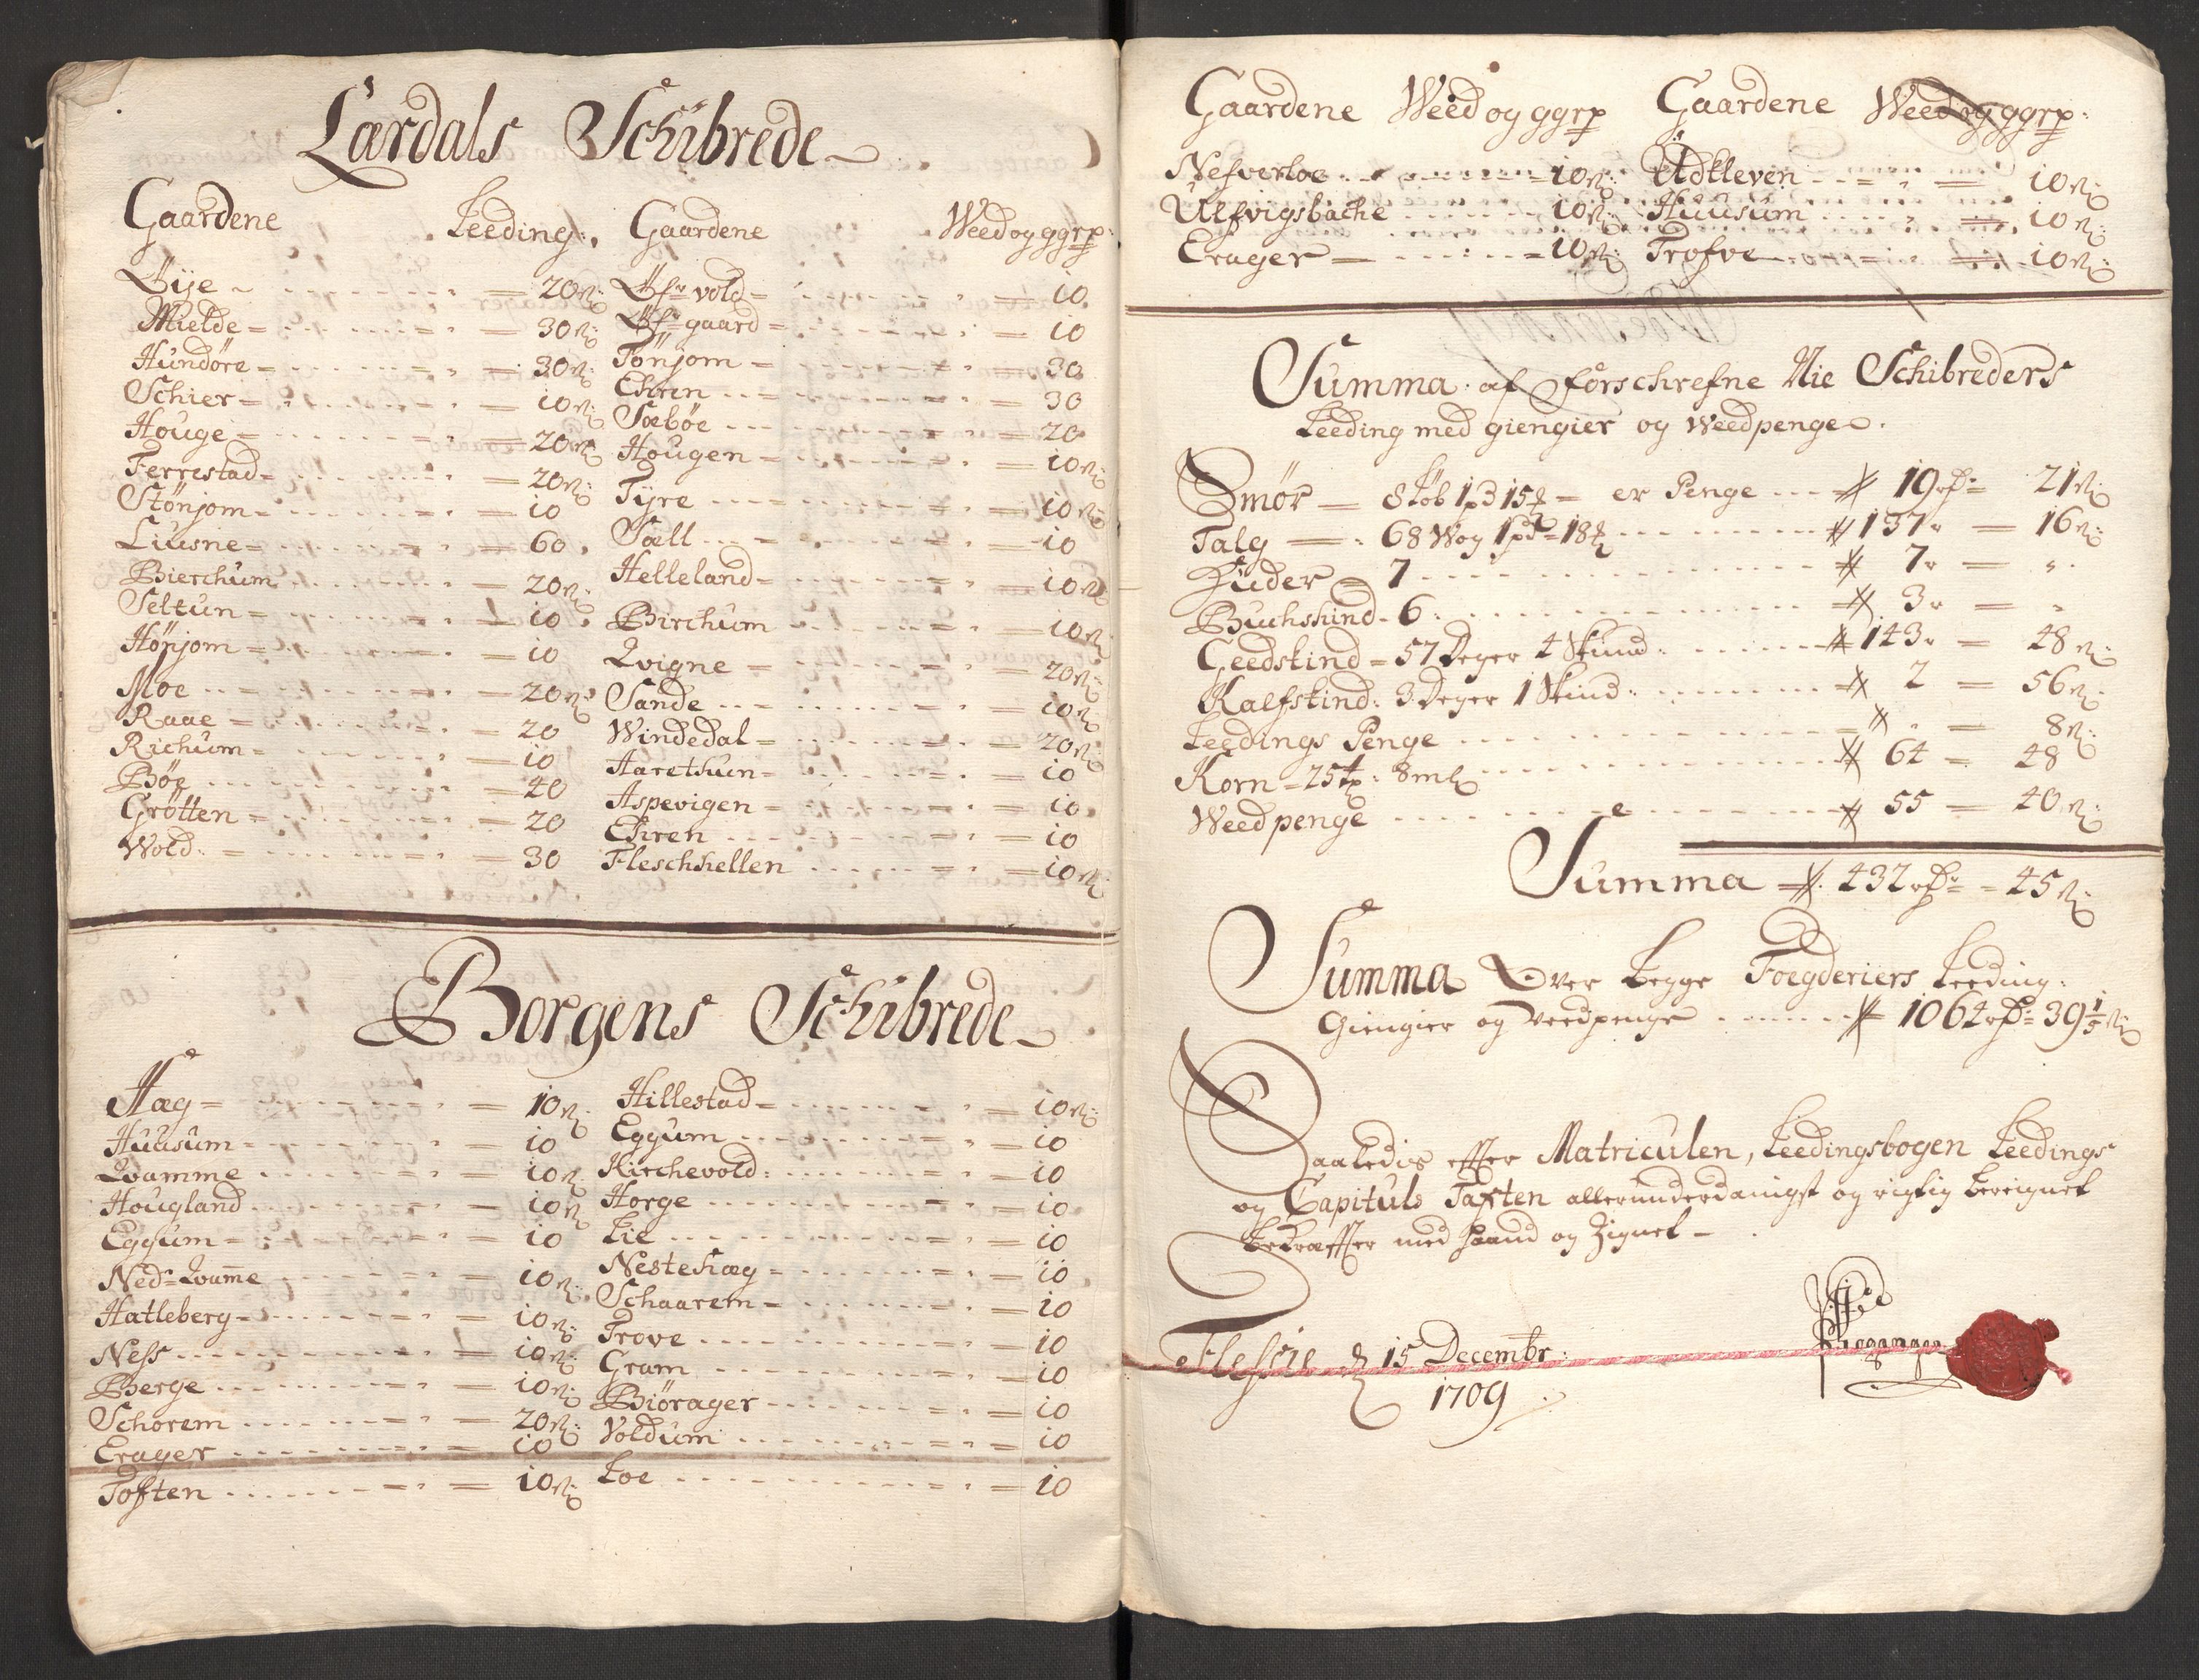 Lærdals Schibrede
Gaardene Leeding: Gaardene Weed og ggrp:
Øije 20 ß: Øfr vold 10
Mielde 30 ß: Øfr gaard 10
Hundöre 30 ß: Tönjom 30
Schier 10 ß: Ehren 30
Houge 20 ß: Sæböe 20
Ferrestad 20 ß: Hougen 10 ß:
Stönjom 10 Tijre 10 ß:
Liusne 60 Sæll 10
Bierchum 20 ß: Helleland 10 ß:
Seltun 10 Birchum 10 ß:
Hönjom 10 Qvigne 20 ß:
Moe 20 ß: Sande 10 ß:
Raae 20 Windedal 20 ß:
Richum 10 Aarethun 10
Böe 40 Aspevigen 10
Grötten 20 Ehren 10
Wold 30 Fleschhellen 10 ß:
Borgens Schibrede
Hæg 10 ß: Hillestad 10 ß:
Huusum 10 Eggum 10
Qvamme 10 ß: Kirchevold 10
Hougland 10 ß: Horge 10
Eggum 10 Lie 10
Ned: Qvame 10 ß: Nestehæg 10
Hatleberg 10 ß: Schaarem 10
Ness 10 ß: Trove 10
Berge 10 ß: Gram 10
Schorem 20 ß: Biörager 10
Erager 10 Voldum 10
Toften 10 ß: Loe 10
Gaardene Weed og ggrp Gaardene Weed og ggrp:
Nesverloe 10 ß: Udkleven 10 ß:
Ulfvigsbache 10 ß: Huusum 10 ß:
Erager 10 ß: Trofve 10 ß:
Summa af forschrefne Nie Schibreders
Leeding med giengier og Weedpenge
Smör 8 Löb 1 p 15 er Penge 19 rdr 21 ß:
Talg 68 Wog 1 pd 18 137 16 ß:
Huder 7 7
Buchskind 6: 3
Geedskind 57 Deger 4 Skind: 143 48 ß:
Kalfskind: 3 Deger 1 Skind: 2 56 ß:
Leedings Penge 8 ß:
Korn 25 8 64 48
Weedpenge 55 40 ß:
Summa 432 rdr 45 ß:
Summa Over begge Foegderiers Leeding:
Giengier og Veedpenge 1062 rdr 39 1/5 ß:
Saaledis efter Matriculen, Leedingsbogen Leedings
og Capituls Taxten allerunderdanigst og rigtig bereignet
bekræfter med haand og Zignet
d 15 Decembr:
1709